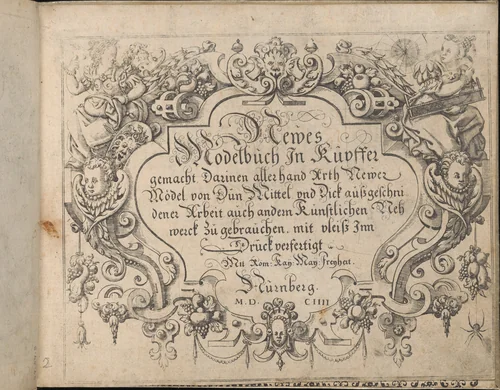 Newes
Modelbüch In Küpffer
gemacht Darinen aller hand Arth Newer
Model von Dün Mittel vnd Dick außgeschni
dener Arbeit auch andern Künstlichen Neh
werck zu gebrauchen. mit vleiß Inn
Drück verfertigt
Mit Rom: Kay: May: freyheit.
Nürnberg.
M.D. CIIII
2